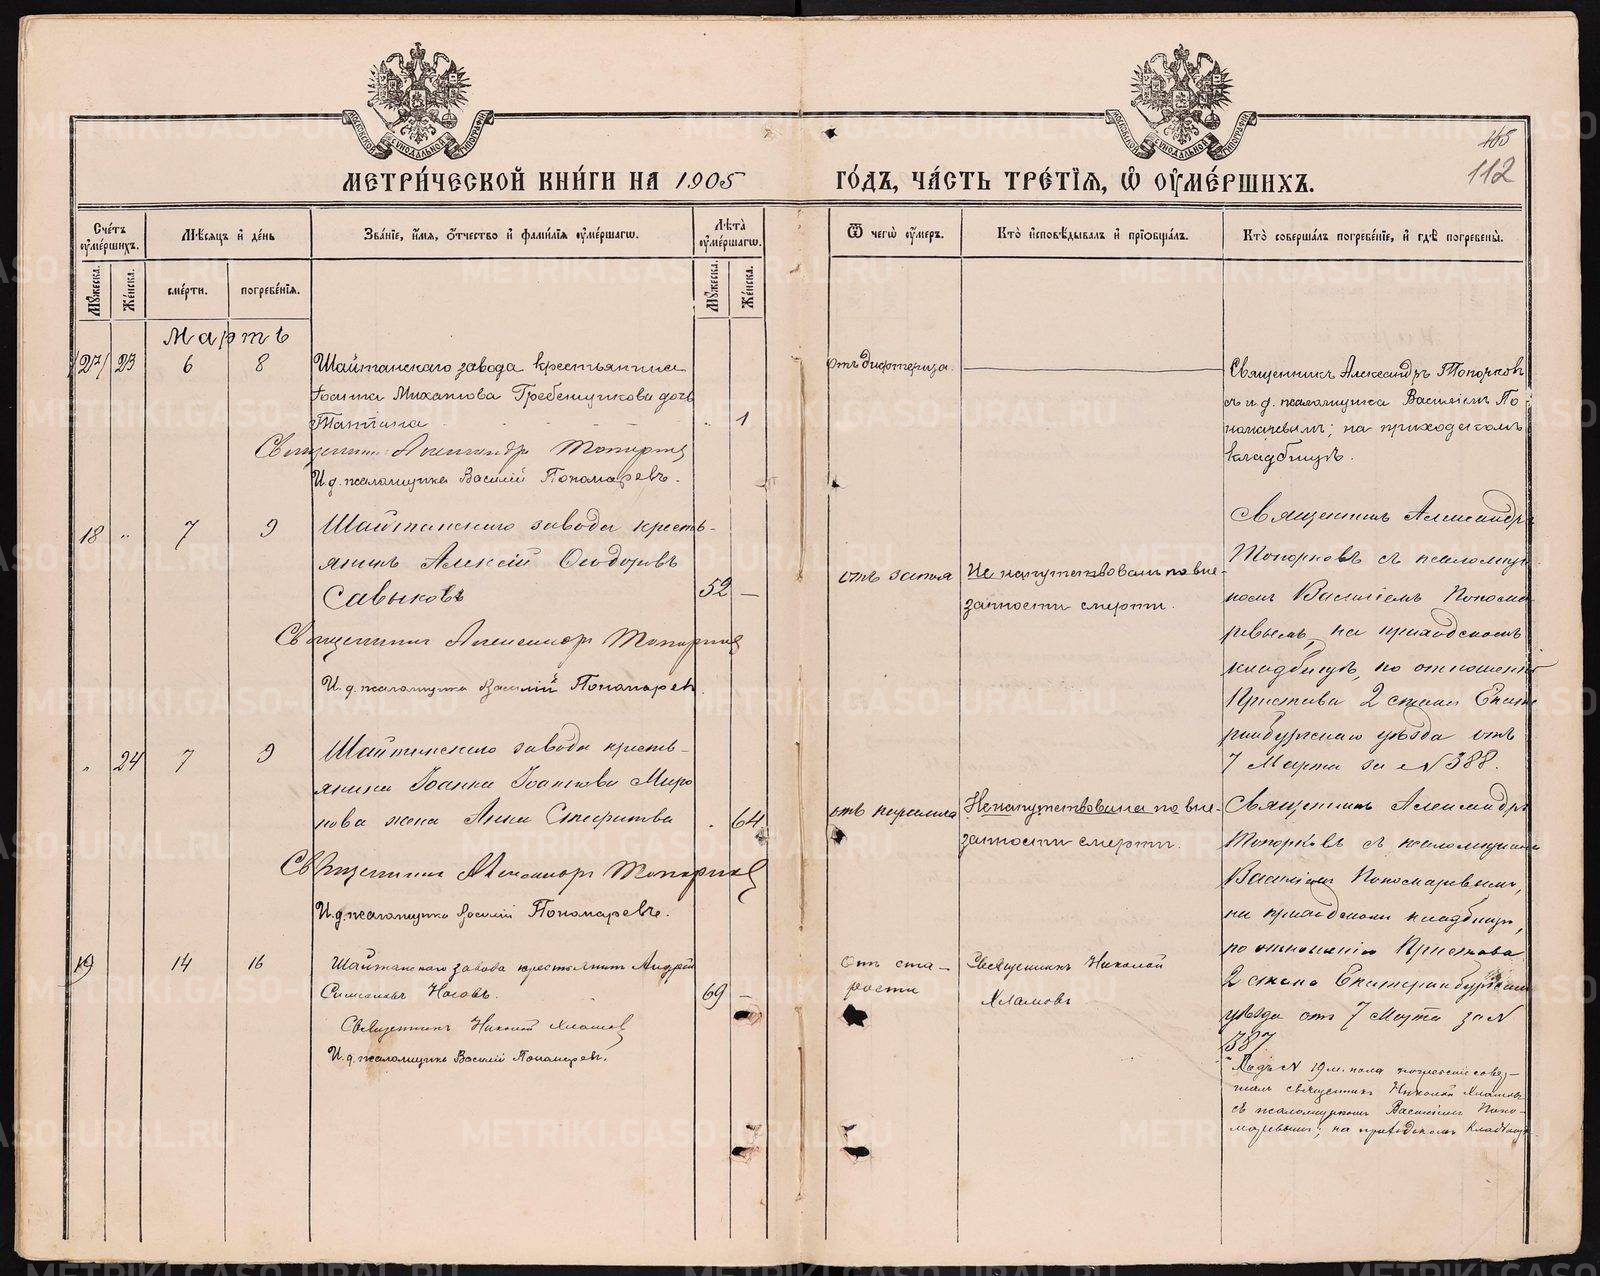 МЕТРИ́ЧЕСКОЙ КНИ́ГИ НА 1905
ГО́ДЪ, ЧА́СТЬ ТРЕ́ТІѦ, Ѡ҆ ОУ҆МЕ́РШИХЪ.
165
112
МОСКОВСКОЙ СѴНОДАЛЬНОЙ ТИПОГРАФІИ
МОСКОВСКОЙ СѴНОДАЛЬНОЙ ТИПОГРАФІИ
Сче́тъ оу҆ме́ршихъ.
Мѣ́сѧцъ и҆ де́нь
Зва́нїе, и҆́мѧ, ѻ҆́тчество и҆ фамі́лїѧ оу҆ме́ршагѡ.
Лѣ́та оу҆ме́ршагѡ.
Ѿ чегѡ̀ оу҆́меръ.
Кто̀ и҆сповѣ́дывалъ и҆ прїѡбща́лъ.
Кто̀ соверша́лъ погребе́нїе, и҆ гдѣ̀ погребены̀.
Мꙋ́жеска.
Же́нска.
сме́рти.
погребе́нїѧ.
Мꙋ́жеска.
Же́нска.
Мартъ
/27/ 23 6 8
Шайтанскаго завода крестьянина
Іоанна Михаилова Гребенщикова дочь
Татіана 1
Священникъ Александръ Топорковъ
И.д. псаломщика Василій Пономаревъ.
отъ дифтерита.
Священникъ Александръ Топорковъ
съ и.д. псаломщика Василіемъ По-
номаревымъ; на приходскомъ
кладбищѣ.
18 " 7 9
Шайтанскаго завода кресть-
янинъ Алексій Ѳеодоровъ
Савыковъ 52 —
Священникъ Александръ Топорковъ
И.д. псаломщика Василій Пономаревъ.
отъ запоя
Не напутствованъ по вне-
запности смерти.
Священникъ Александръ
Топорковъ съ псаломщи-
комъ Василіемъ Понома-
ревымъ, на приходскомъ
кладбищѣ, по отношенію
Пристава 2 стана Екате-
ринбургскаго уѣзда отъ
7 Марта за № 388.
" 24 7 9
Шайтанскаго завода кресть-
янина Іоанна Іоаннова Миро
нова жена Анна Спиридонова 64
Священникъ Александръ Топорковъ
И.д. псаломщика Василій Пономаревъ.
отъ паралича
Не напутствована по вне-
запности смерти.
Священникъ Александръ
Топорковъ съ псаломщикомъ
Василіемъ Пономаревымъ,
на приходскомъ кладбищѣ,
по отношенію Пристава
2 стана Екатеринбургскаго
уѣзда отъ 7 Марта за №
387.
19 14 16
Шайтанскаго завода крестьянинъ Андрей
Носовъ. 69 —
Священникъ Николай Хламовъ
И.д. псаломщика Василій Пономаревъ.
Отъ ста-
рости
Священникъ Николай
Хламовъ
Подъ № 19 м. пола погребеніе совер-
шалъ священникъ Николай Хламовъ
съ псаломщикомъ Василіемъ Поно-
маревымъ; на приходскомъ кладбищѣ.
METRIKI.GASO-URAL.RU